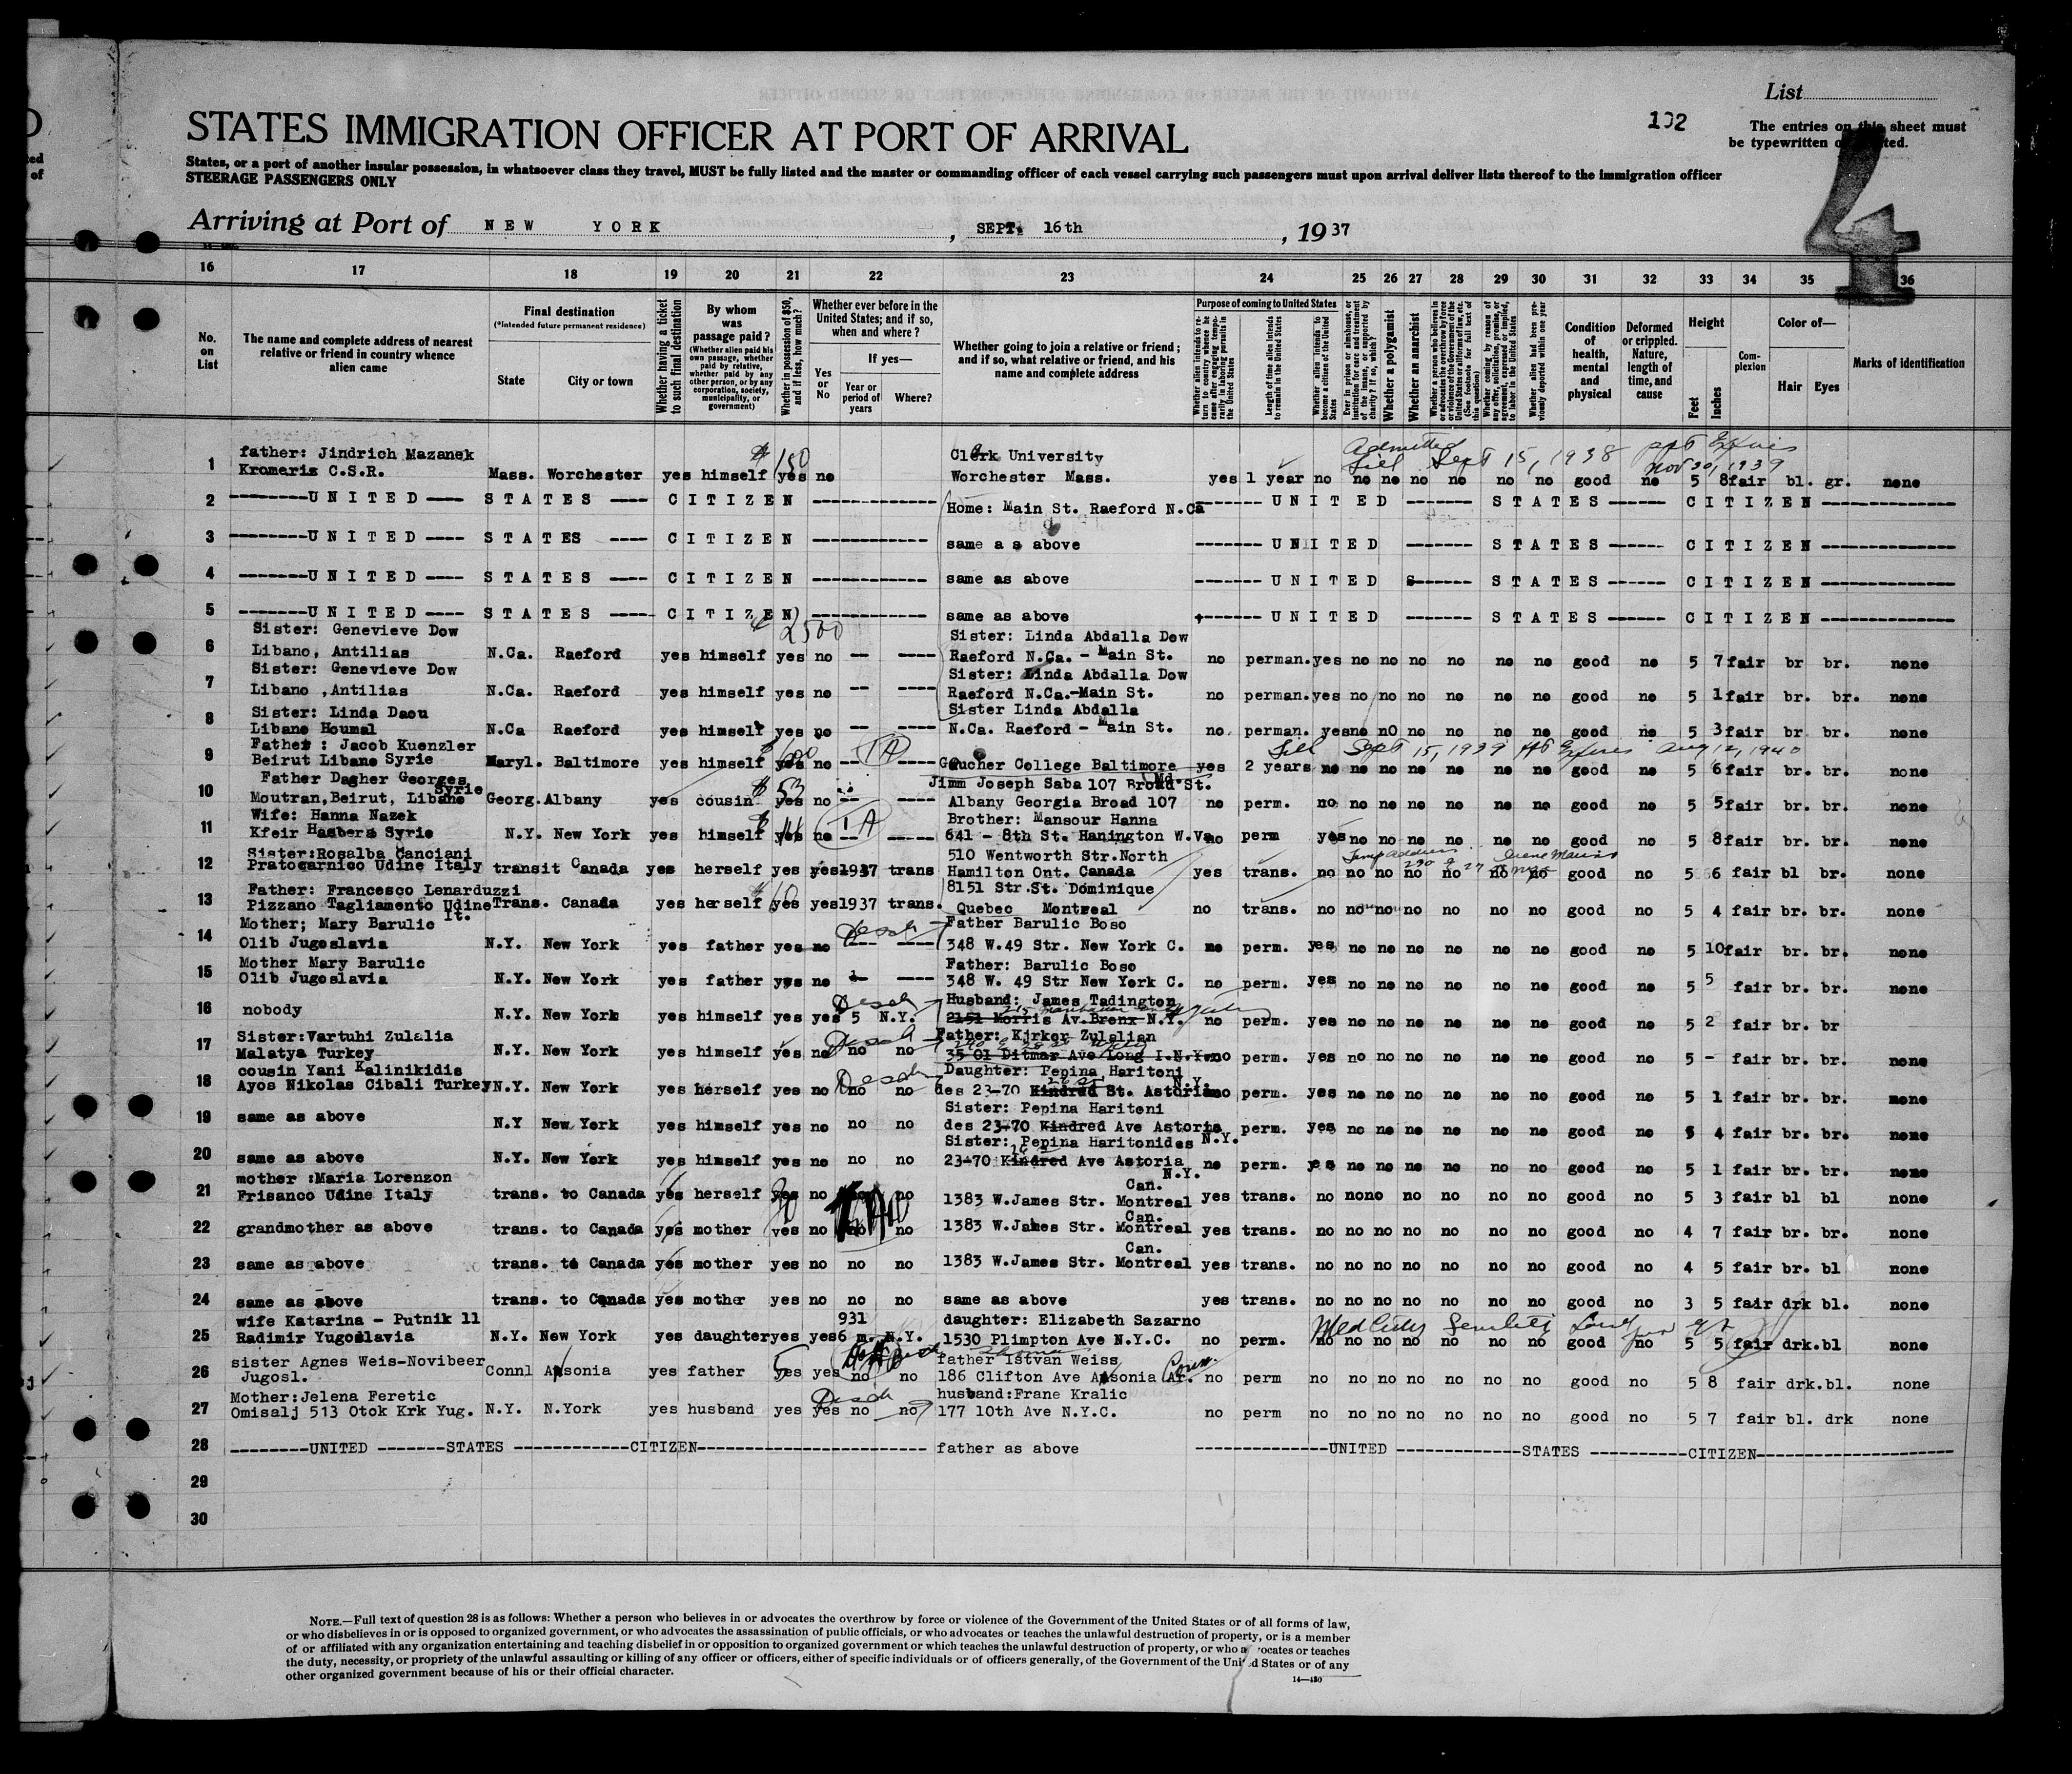 List
102
STATES IMMIGRATION OFFICER AT PORT OF ARRIVAL
The entries on this sheet must
be typewritten or
4
States, or a port of another insular possession, in whatsoever class they travel, MUST be fully listed and the master or commanding officer of each vessel carrying such passengers must upon arrival deliver lists thereof to the immigration officer
STEERAGE PASSENGERS ONLY
Arriving at Port of NEW YORK, SEPT. 16th, 1937
16 17 18 19 20 21 22 23 24 25 26 27 28 29 30 31 32 33 34 35 36
No. on List
The name and complete address of nearest relative or friend in country whence alien came
Final destination
(*Intended future permanent residence)
State
City or town
Whether having a ticket to such final destination
By whom was passage paid?
(Whether alien paid his own passage, whether paid by relative, whether paid by any other person, or by any corporation, society, municipality, or government)
Whether in possession of $50, and if less, how much?
Whether ever before in the United States; and if so, when and where?
Yes or No
If yes—
Year or period of years
Where?
Whether going to join a relative or friend; and if so, what relative or friend, and his name and complete address
Purpose of coming to United States
Whether alien intends to return to country whence he came after engaging temporarily in laboring pursuits in the United States
Length of time alien intends to remain in the United States
Whether alien intends to become a citizen of the United States
Ever in prison or almshouse, or institution for care and treatment of the insane, or supported by charity? If so, which?
Whether a polygamist
Whether an anarchist
Whether a person who believes in or advocates the overthrow by force or violence of the Government of the United States or all forms of law, etc. (See footnote for full text of this question)
Whether coming by reason of any offer, solicitation, promise, or agreement, expressed or implied, to labor in the United States
Whether alien had been previously deported within one year
Condition of health, mental and physical
Deformed or crippled. Nature, length of time, and cause
Height
Feet
Inches
Complexion
Color of—
Hair
Eyes
Marks of identification
Admitted Sept 15, 1938
Nov 30, 1939
1 father: Jindrich Mazanek Clark University
Kromeriz C.S.R. Mass. Worchester yes himself $150 yes no Worchester Mass. yes 1 year no no no no no no no good no 5 8 fair bl. gr. none
2 --------UNITED ---- STATES ---- CITIZEN ------------ Home: Main St. Raeford N.Ca ------- UNITED ------- STATES ------ CITIZEN --------------
3 --------UNITED ---- STATES ---- CITIZEN ------------ same as above ------- UNITED ------- STATES ------ CITIZEN --------------
4 --------UNITED ---- STATES ---- CITIZEN ------------ same as above ------- UNITED S------ STATES ------ CITIZEN --------------
5 --------UNITED ---- STATES ---- CITIZEN ------------ same as above ------- UNITED ------- STATES ------ CITIZEN --------------
6 Sister: Genevieve Dow 2500 Sister: Linda Abdalla Dow
Libano, Antilias N.Ca. Raeford yes himself yes no -- ---- Raeford N.Ca. - Main St. no perman. yes no no no no no no good no 5 7 fair br br. none
7 Sister: Genevieve Dow Sister: Linda Abdalla Dow
Libano ,Antilias N.Ca. Raeford yes himself yes no -- ---- Raeford N.Ca.-Main St. no perman. yes no no no no no no good no 5 1 fair br. br. none
8 Sister: Linda Daou Sister Linda Abdalla
Libano Houmal N.Ca Raeford yes himself yes no -- ---- N.Ca. Raeford - Main St. no perman. yes no nO no no no no good no 5 3 fair br. br. none
Sept 15, 1939 Aug 12, 1940
9 Father : Jacob Kuenzler $600
Beirut Libano Syrie Maryl. Baltimore yes himself yes no ---- Goucher College Baltimore Md. yes 2 years no no no no no no no good no 5 6 fair br. br. none
10 Father Dagher Georges Jimm Joseph Saba 107 Broad St.
Moutran,Beirut, Libano Syrie Georg. Albany yes cousin $53 yes no -- ---- Albany Georgia Broad 107 no perm. no no no no no no no good no 5 5 fair br. br. none
11 Wife: Hanna Nazek Brother: Mansour Hanna
Kfeir Hasbera Syrie N.Y. New York yes himself yes no -- ---- 641 - 8th St. Hanington W.Va no perm yes no no no no no no good no 5 8 fair br. br. none
12 Sister:Rosalba Canciani 510 Wentworth Str.North
Pratocarnico Udine Italy transit Canada yes herself yes yes 1937 trans Hamilton Ont. Canada yes trans. no no no no no no no good no 5 6 fair bl br. none
13 Father: Francesco Lenarduzzi 8151 Str.St. Dominique
Pizzano Tagliamento Udine It. Trans. Canada yes herself yes yes 1937 trans. Quebec Montreal no trans. no no no no no no no good no 5 4 fair br. br. none
14 Mother; Mary Barulic Father Barulic Boso
Olib Jugoslavia N.Y. New York yes father yes no --- ---- 348 W.49 Str. New York C. no perm. yes no no no no no no good no 5 10 fair br. br. none
15 Mother Mary Barulic Father: Barulic Boso
Olib Jugoslavia N.Y. New York yes father yes no -- ---- 348 W. 49 Str New York C. no perm. yes no no no no no no good no 5 5 fair br. br. none
16 nobody Husband: James Tadington
N.Y. New York yes himself yes yes 5 N.Y. 2151 Morris Av.Bronx N.Y. no perm. yes no no no no no no good no 5 2 fair br. br
17 Sister:Vartuhi Zulalia Father: Kirker Zulalian
Malatya Turkey N.Y. New York yes himself yes no no no 35 01 Ditmar Ave Long I.N.Y. no perm. yes no no no no no no good no 5 - fair br. br. none
18 cousin Yani Kalinikidis Daughter: Pepina Haritoni
Ayos Nikolas Cibali Turkey N.Y. New York yes herself yes no no no des 23-70 Kindred St. Astoria N.Y. no perm. yes no no no no no no good no 5 1 fair br. br. none
19 same as above Sister: Pepina Haritoni
N.Y New York yes himself yes no no no des 23-70 Kindred Ave Astoria N.Y. perm. yes no no no no no no good no 5 4 fair br. br. none
20 same as above Sister: Pepina Haritonides
N.Y. New York yes himself yes no no no 23-70 Kindred Ave Astoria N.Y. no perm. yes no no no no no no good no 5 1 fair br. br. none
21 mother :Maria Lorenzon
Frisanco Udine Italy trans. to Canada yes herself yes no no 1383 W.James Str. Montreal Can. yes trans. no no no no no no no good no 5 3 fair bl bl none
22 grandmother as above trans. to Canada yes mother yes no no no 1383 W.James Str. Montreal Can. yes trans. no no no no no no no good no 4 7 fair br. br. none
23 same as above trans. to Canada yes mother yes no no no 1383 W.James Str. Montreal Can. yes trans. no no no no no no no good no 4 5 fair br. bl none
24 same as above trans. to Canada yes mother yes no no no same as above yes trans. no no no no no no no good no 3 5 fair drk bl. none
25 wife Katarina - Putnik 11 931 daughter: Elizabeth Sazarno
Radimir Yugoslavia N.Y. New York yes daughter yes yes 6 m. N.Y. 1530 Plimpton Ave N.Y.C. no perm. no no no no no no no good no 5 5 fair drk.bl none
26 sister Agnes Weis-Novibeer father Istvan Weiss
Jugosl. Connl Ansonia yes father yes yes no no 186 Clifton Ave Ansonia Conn. no perm no no no no no no no good no 5 8 fair drk.bl. none
27 Mother:Jelena Feretic husband:Frane Kralic
Omisalj 513 Otok Krk Yug. N.Y. N.York yes husband yes yes no no 177 10th Ave N.Y.C. no perm no no no no no no no good no 5 7 fair bl. drk none
28 --------UNITED -------STATES ------------CITIZEN------------------------ father as above --------------UNITED -------------STATES ----------CITIZEN--------------------
29
30
NOTE.—Full text of question 28 is as follows: Whether a person who believes in or advocates the overthrow by force or violence of the Government of the United States or of all forms of law,
or who disbelieves in or is opposed to organized government, or who advocates the assassination of public officials, or who advocates or teaches the unlawful destruction of property, or is a member
of or affiliated with any organization entertaining and teaching disbelief in or opposition to organized government or which teaches the unlawful destruction of property, or who advocates or teaches
the duty, necessity, or propriety of the unlawful assaulting or killing of any officer or officers, either of specific individuals or of officers generally, of the Government of the United States or of any
other organized government because of his or their official character.
14—430